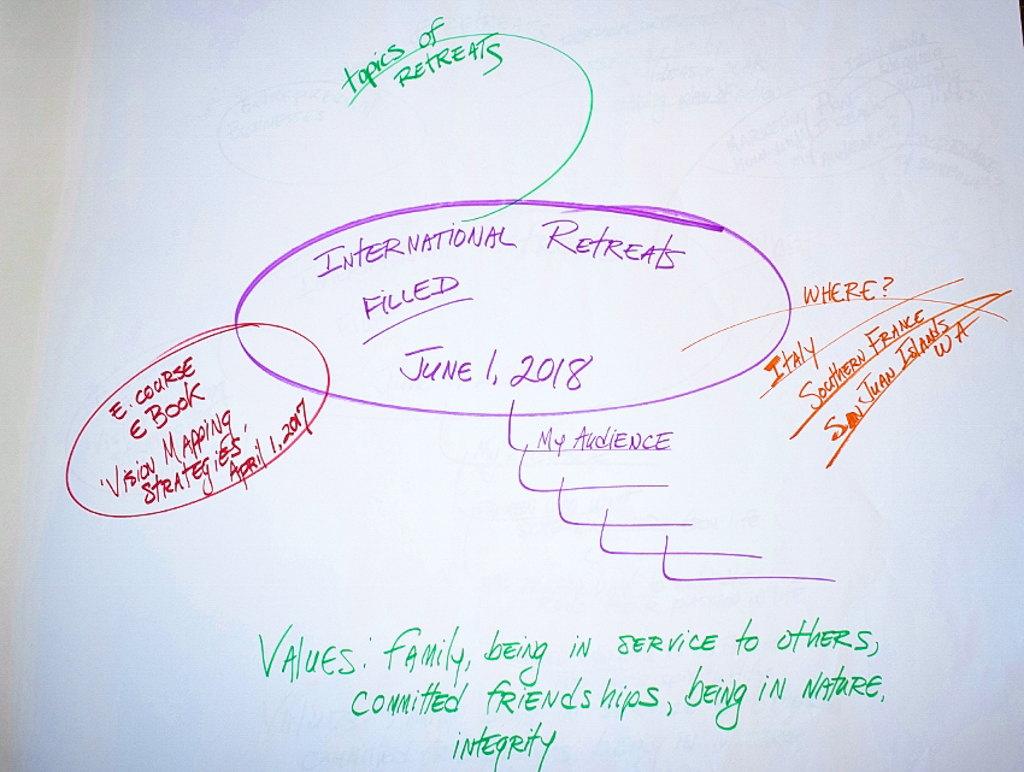 topics of
RETREATS
INTERNATIONAL Retreats
FILLED
JUNE 1, 2018
WHERE?
ITALY
SOUTHERN FRANCE
SAN JUAN ISLANDS
WA
E. COURSE
E BOOK
'VISION MAPPING
STRATEGIES'
APRIL 1, 2017
My AUDIENCE
VALUES: FAMILY, being in SERVICE to OTHERS,
COMMITTED FRIENDSHIPS, being in NATURE,
INTEGRITY